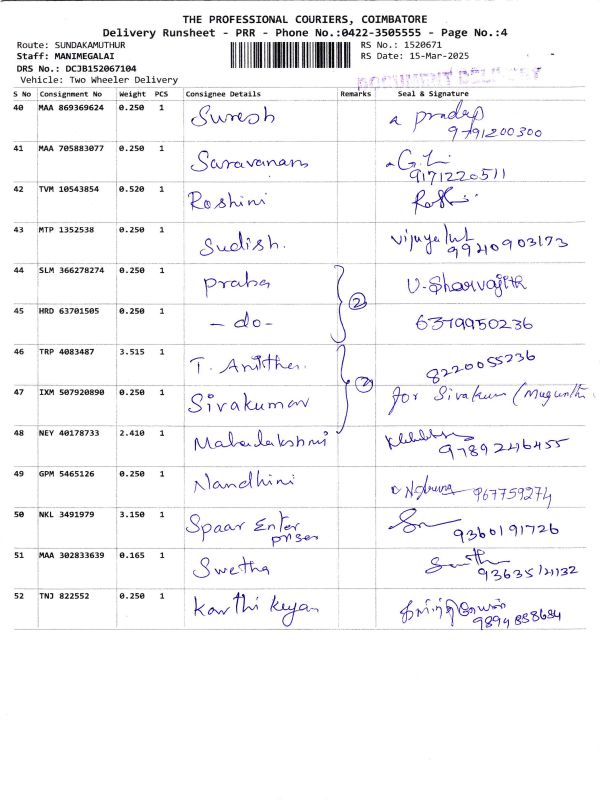 THE PROFESSIONAL COURIERS, COIMBATORE
Delivery Runsheet - PRR - Phone No.:0422-3505555 - Page No.:4
Route: SUNDAKAMUTHUR RS No.: 1520671
Staff: MANIMEGALAI RS Date: 15-Mar-2025
DRS No.: DCJB152067104
DOCUMENT DELIVERY
Vehicle: Two Wheeler Delivery
S No Consignment No Weight PCS Consignee Details Remarks Seal & Signature
40 MAA 869369624 0.250 1 Suresh a pradap
9791200300
41 MAA 705883077 0.250 1 Saravanan
9171220511
42 TVM 10543854 0.520 1 Roshini
43 MTP 1352538 0.250 1 Sudish.
9940903173
44 SLM 366278274 0.250 1 Praba 2 U. Sharvajith
45 HRD 63701505 0.250 1 - do - 6379950236
46 TRP 4083487 3.515 1 T. Anitha. 8220055236
47 IXM 507920890 0.250 1 Sivakumar for Sivakum
48 NEY 40178733 2.410 1 Mahalakshmi
9789246455
49 GPM 5465126 0.250 1 Nandhini 967759274
50 NKL 3491979 3.150 1 Spaar Enter
prises 9360191726
51 MAA 302833639 0.165 1 Swetha
52 TNJ 822552 0.250 1 Karthi keyan
9894858684